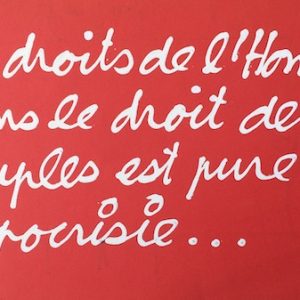 droits de l'Hom
ns le droit de
uples est pure
pocrisie...